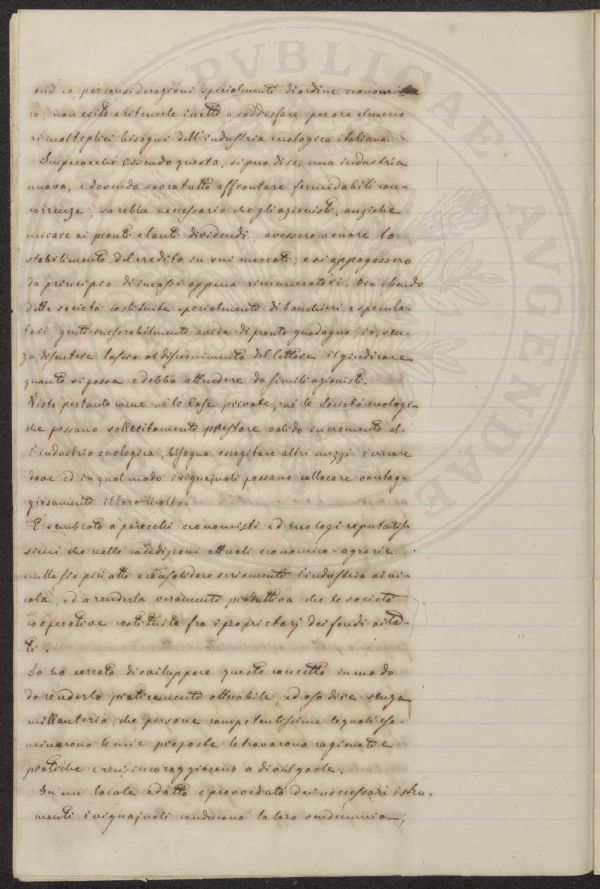 ond'io, per considerazioni specialmente di ordine economi-
co, non esito a ritenerle inette a soddisfare per ora almeno
ai molteplici bisogni dell'industria enologica italiana.
Imperocchè essendo questa, si può dire, una industria
nuova, e dovendo sovratutto affrontare formidabili con-
correnze, sarebbe necessario che gli azionisti, anzichè
mirare ai pronti e lauti dividendi, avessero a cuore lo
stabilimento del credito in vari mercati, e si appagassero
da principio di incassi appena rimuneratori. Ora essendo
dette società costituite specialmente di banchieri e specula-
tori gente inesorabilmente avida di pronto guadagno, io, sen-
za discutere lascio al discernimento del lettore il giudicare
quanto si possa e debba attendere da simili azionisti.
Visto pertanto come nè le Case private, nè le Società enologi-
che possano sollecitamente prestare valido incremento al-
l'industria enologica, bisogna escogitare altri mezzi e vedere
dove ed in qual modo i vignajuoli possano collocare vantag-
giosamente il loro
È sembrato a parecchi economisti ed Enologi reputatis-
simi che nelle condizioni attuali economico-agrarie
nulla sia più atto a consolidare seriamente l'industria vini-
cola, ed a renderla veramente produttiva che le società
cooperative costituite fra i proprietarj dei fondi vita-
ti.
Io ho cercato di sviluppare questo concetto in modo
da renderlo praticamente attuabile, ed oso dire senza
millanteria, che persone competentissime le quali esa-
minarono le mie proposte le trovarono ragionate e
pratiche e mi incoraggiarono a divulgarle.
In un locale adatto e provveduto dei necessari istru-
menti i vignajuoli conducono la loro vendemmia,
PVBLICAE AVGENDAE